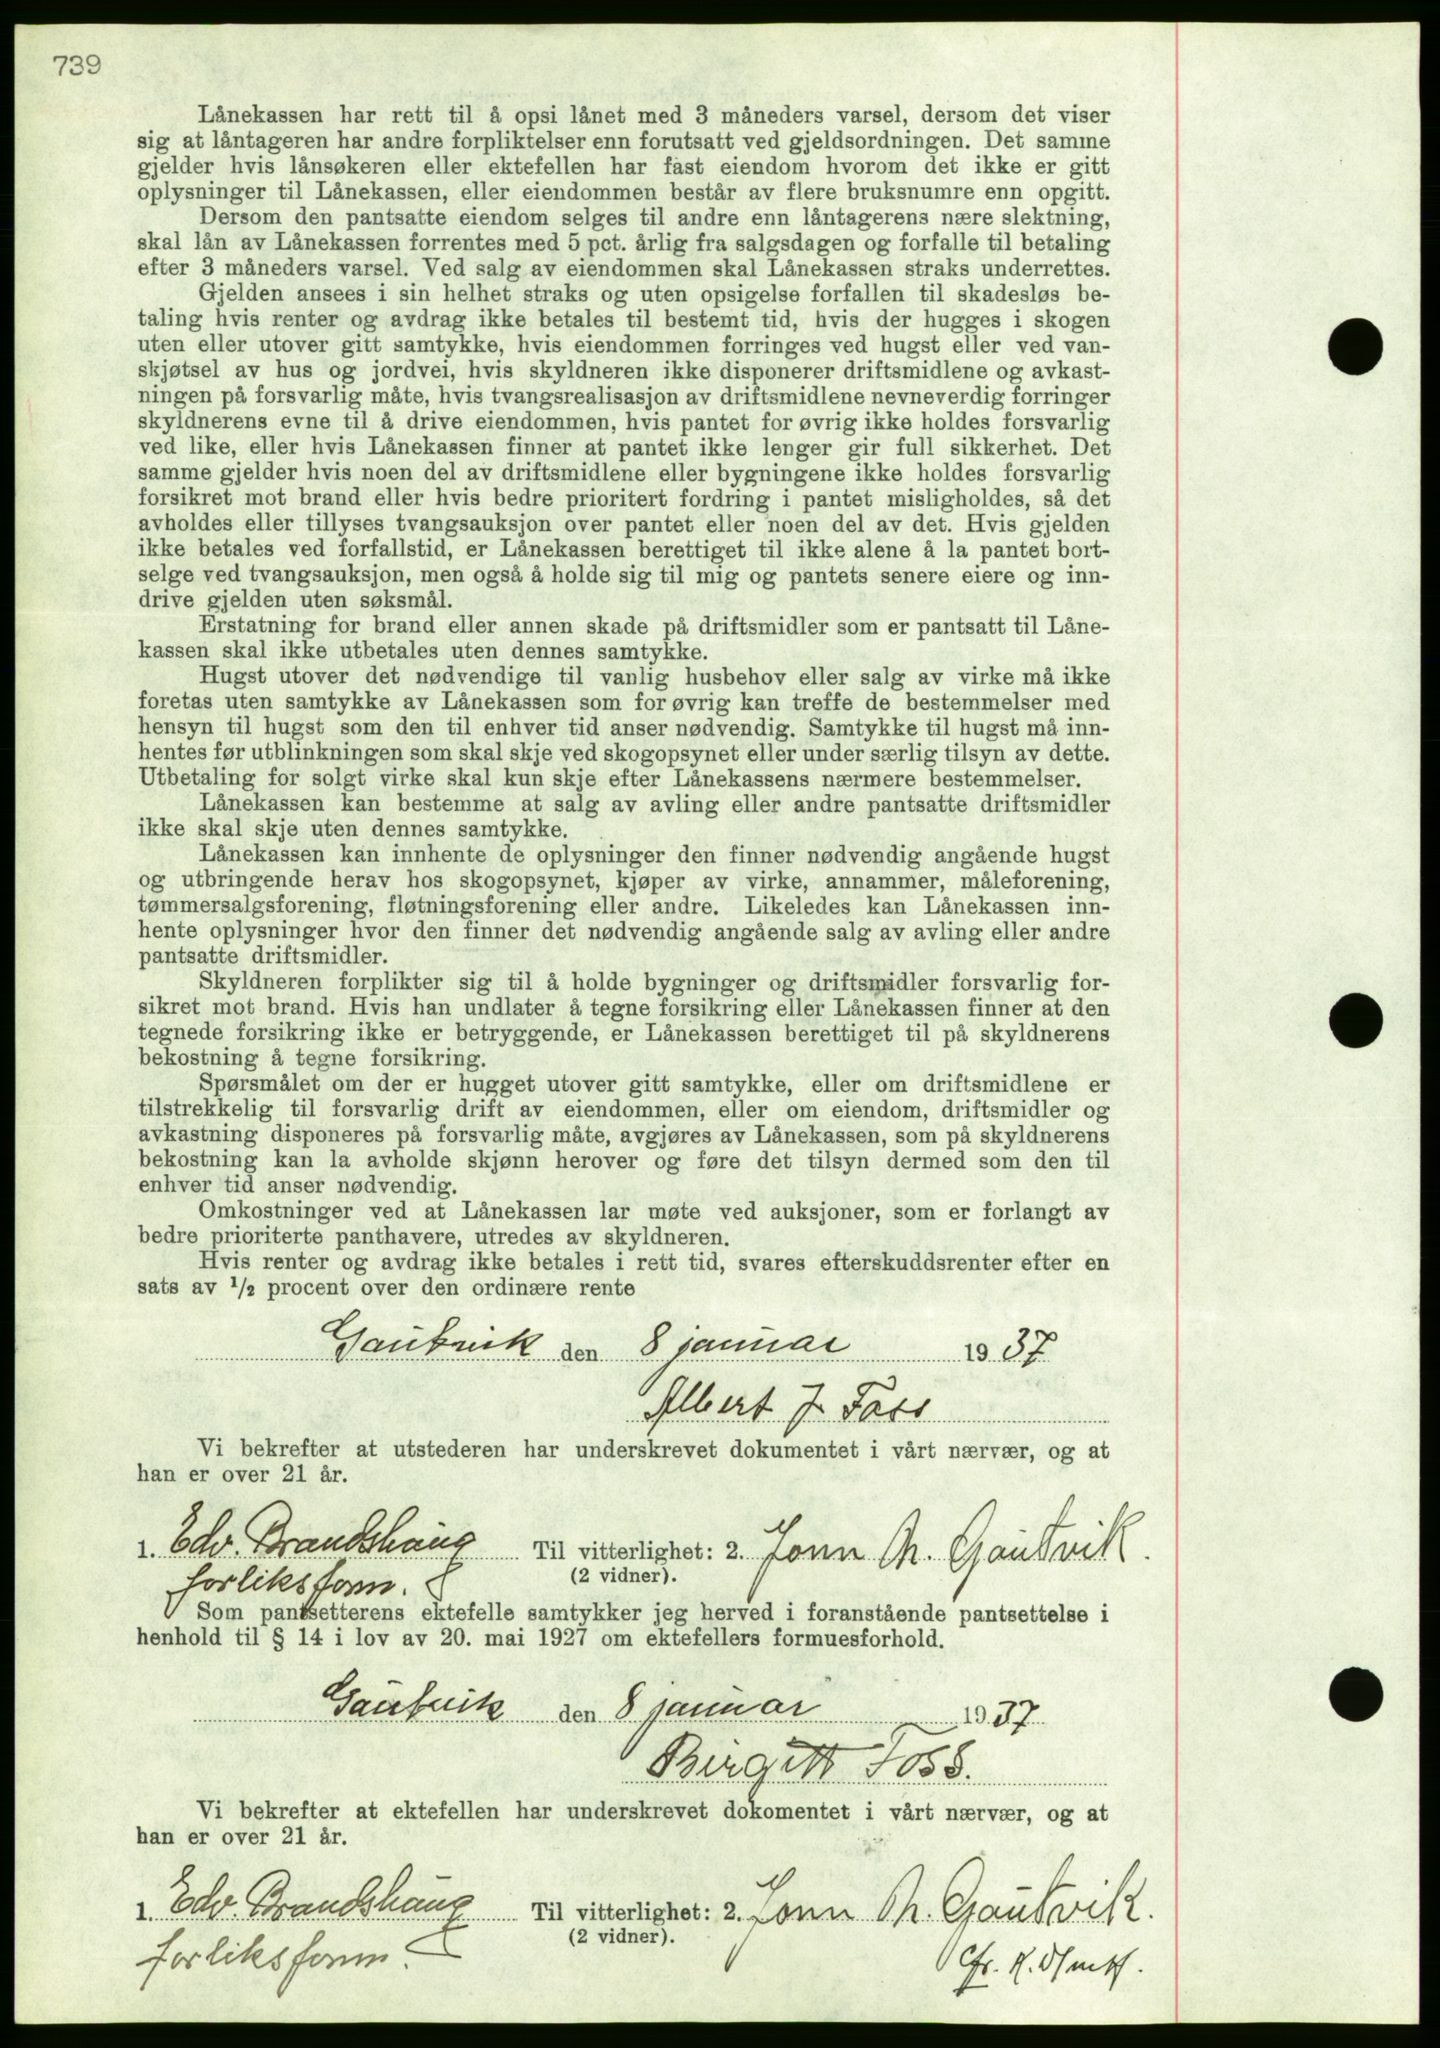 739
Lånekassen har rett til å opsi lånet med 3 måneders varsel, dersom det viser
sig at låntageren har andre forpliktelser enn forutsatt ved gjeldsordningen. Det samme
gjelder hvis lånsøkeren eller ektefellen har fast eiendom hvorom det ikke er gitt
oplysninger til Lånekassen, eller eiendommen består av flere bruksnumre enn opgitt.
Dersom den pantsatte eiendom selges til andre enn låntagerens nære slektning,
skal lån av Lånekassen forrentes med 5 pct. årlig fra salgsdagen og forfalle til betaling
efter 3 måneders varsel. Ved salg av eiendommen skal Lånekassen straks underrettes.
Gjelden ansees i sin helhet straks og uten opsigelse forfallen til skadesløs be-
taling hvis renter og avdrag ikke betales til bestemt tid, hvis der hugges i skogen
uten eller utover gitt samtykke, hvis eiendommen forringes ved hugst eller ved van-
skjøtsel av hus og jordvei, hvis skyldneren ikke disponerer driftsmidlene og avkast-
ningen på forsvarlig måte, hvis tvangsrealisasjon av driftsmidlene nevneverdig forringer
skyldnerens evne til å drive eiendommen, hvis pantet for øvrig ikke holdes forsvarlig
ved like, eller hvis Lånekassen finner at pantet ikke lenger gir full sikkerhet. Det
samme gjelder hvis noen del av driftsmidlene eller bygningene ikke holdes forsvarlig
forsikret mot brand eller hvis bedre prioritert fordring i pantet misligholdes, så det
avholdes eller tillyses tvangsauksjon over pantet eller noen del av det. Hvis gjelden
ikke betales ved forfallstid, er Lånekassen berettiget til ikke alene å la pantet bort-
selge ved tvangsauksjon, men også å holde sig til mig og pantets senere eiere og inn-
drive gjelden uten søksmål.
Erstatning for brand eller annen skade på driftsmidler som er pantsatt til Låne-
kassen skal ikke utbetales uten dennes samtykke.
Hugst utover det nødvendige til vanlig husbehov eller salg av virke må ikke
foretas uten samtykke av Lånekassen som for øvrig kan treffe de bestemmelser med
hensyn til hugst som den til enhver tid anser nødvendig. Samtykke til hugst må inn-
hentes før utblinkningen som skal skje ved skogopsynet eller under særlig tilsyn av dette.
Utbetaling for solgt virke skal kun skje efter Lånekassens nærmere bestemmelser.
Lånekassen kan bestemme at salg av avling eller andre pantsatte driftsmidler
ikke skal skje uten dennes samtykke.
Lånekassen kan innhente de oplysninger den finner nødvendig angående hugst
og utbringende herav hos skogopsynet, kjøper av virke, annammer, måleforening,
tømmersalgsforening, fløtningsforening eller andre. Likeledes kan Lånekassen inn-
hente oplysninger hvor den finner det nødvendig angående salg av avling eller andre
pantsatte driftsmidler.
Skyldneren forplikter sig til å holde bygninger og driftsmidler forsvarlig for-
sikret mot brand. Hvis han undlater å tegne forsikring eller Lånekassen finner at den
tegnede forsikring ikke er betryggende, er Lånekassen berettiget til på skyldnerens
bekostning å tegne forsikring.
Spørsmålet om der er hugget utover gitt samtykke, eller om driftsmidlene er
tilstrekkelig til forsvarlig drift av eiendommen, eller om eiendom, driftsmidler og
avkastning disponeres på forsvarlig måte, avgjøres av Lånekassen, som på skyldnerens
bekostning kan la avholde skjønn herover og føre det tilsyn dermed som den til
enhver tid anser nødvendig.
Omkostninger ved at Lånekassen lar møte ved auksjoner, som er forlangt av
bedre prioriterte panthavere, utredes av skyldneren.
Hvis renter og avdrag ikke betales i rett tid, svares efterskuddsrenter efter en
sats av 1/2 procent over den ordinære rente
Gautvik den 8 januar 1937
Albert J Foss
Vi bekrefter at utstederen har underskrevet dokumentet i vårt nærvær, og at
han er over 21 år.
1. Edv. Brandshaug Til vitterlighet: 2. Jonn M. Gautvik.
forliksform. (2 vidner).
Som pantsetterens ektefelle samtykker jeg herved i foranstående pantsettelse i
henhold til § 14 i lov av 20. mai 1927 om ektefellers formuesforhold.
Gautvik den 8 januar 1937
Birgitt Foss.
Vi bekrefter at ektefellen har underskrevet dokomentet i vårt nærvær, og at
han er over 21 år.
1. Edv. Brandshaug Til vitterlighet: 2. Jonn M. Gautvik.
forliksform. (2 vidner).